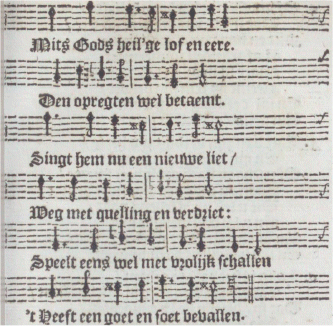 Mits Gods heil'ge lof en eere.
Den opregten wel betaemt.
Singt hem nu een nieuwe liet /
Weg met quelling en verdriet:
Speelt eens wel met vrolijk schallen
't Heeft een goet en soet bevallen.